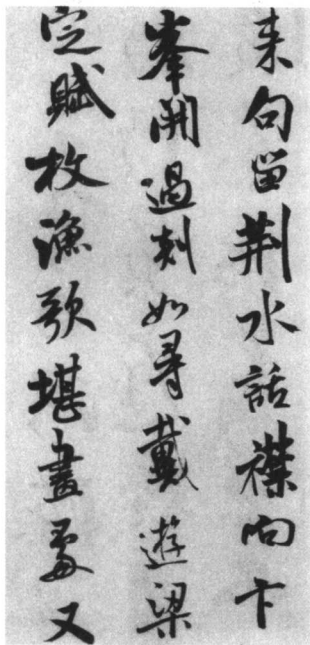 来句留荆水話襟向卞
峯開過剡如尋戴遊梁
定賦枚漁歌堪畫處又